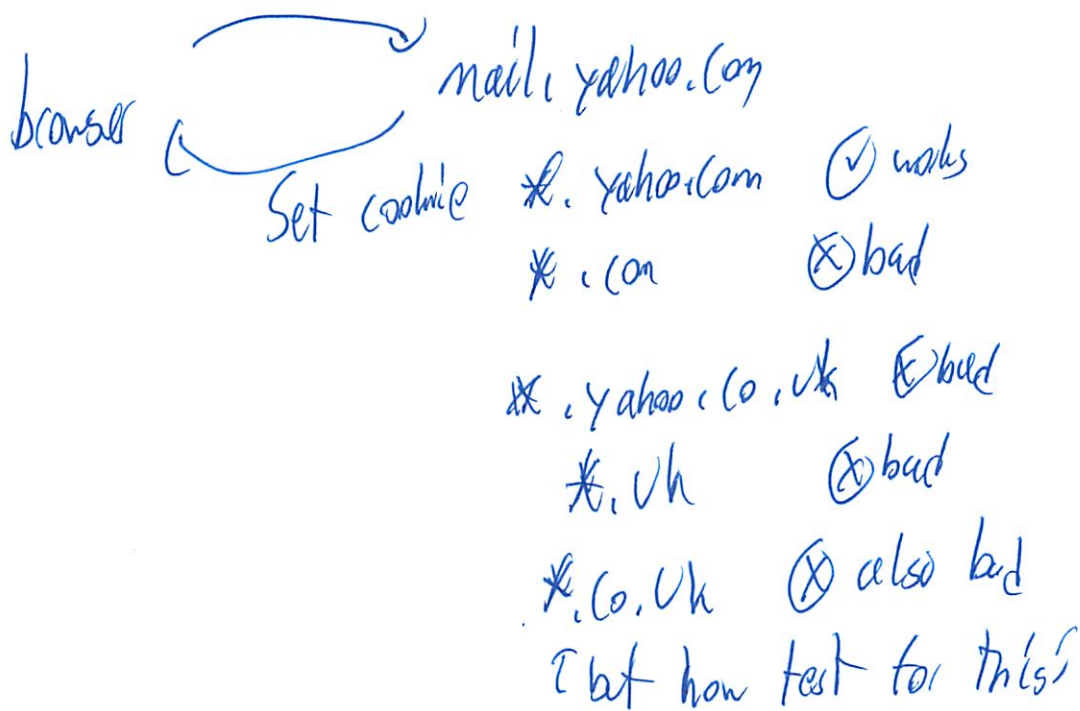 browser
mail. yahoo.com
Set cookie *. yahoo.com ✓ works
*.com ⓧ bad
*.yahoo.co.uk ⓧ bad
*.uk ⓧ bad
*.co.uk ⓧ also bad
↑ but how test for this?